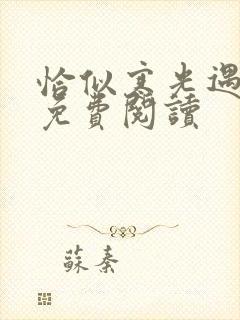 恰似寒光遇
免費閱讀
蘇秦